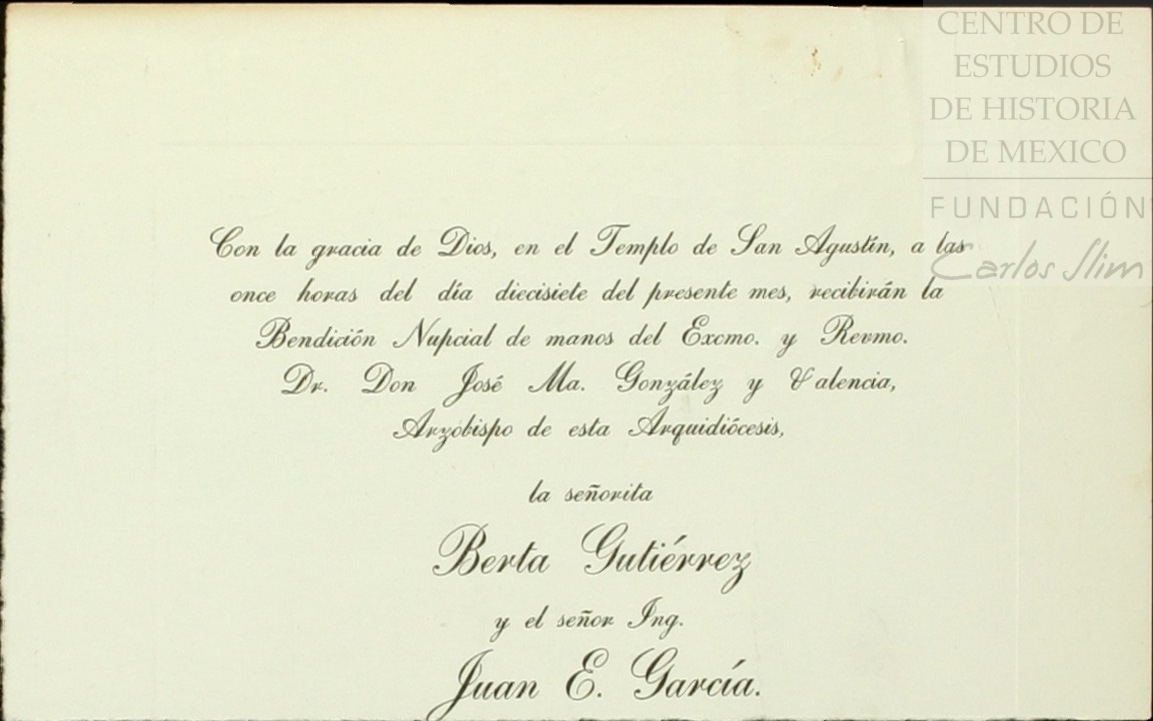 CENTRO DE
ESTUDIOS
DE HISTORIA
DE MEXICO
FUNDACIÓN
Carlos Slim
Con la gracia de Dios, en el Templo de San Agustín, a las
once horas del día diecisiete del presente mes, recibirán la
Bendición Nupcial de manos del Excmo. y Revmo.
Dr. Don José Ma. González y Valencia,
Arzobispo de esta Arquidiócesis,
la señorita
Berta Gutiérrez
y el señor Ing.
Juan E. García.